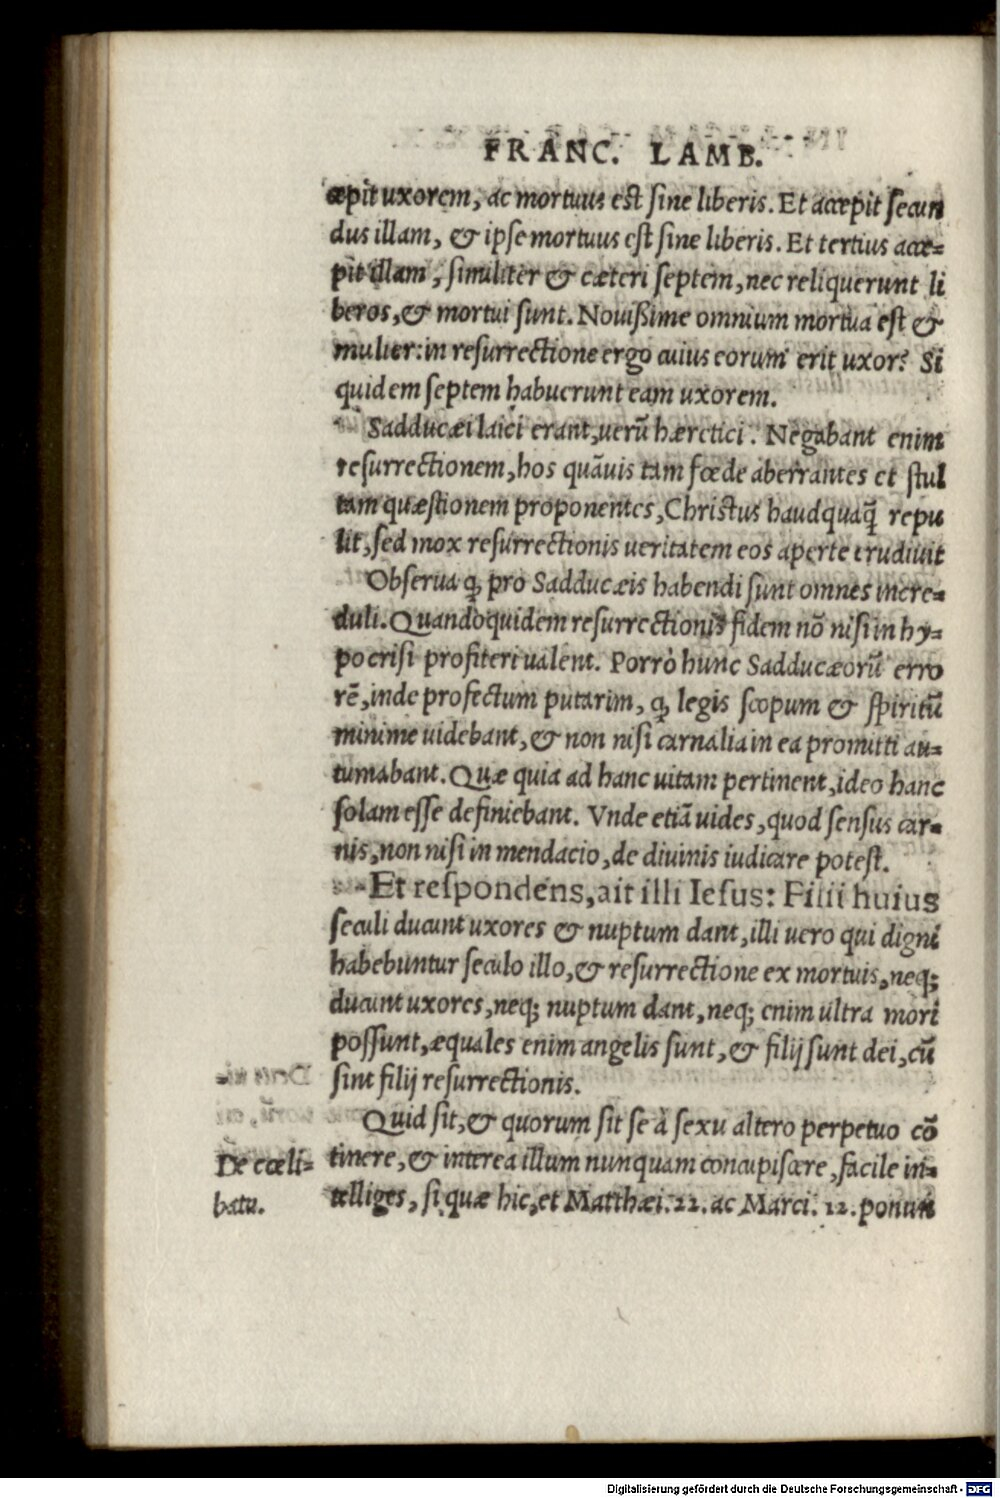 FRANC. LAMB.
cepit uxorem, ac mortuus est sine liberis. Et accepit secun
dus illam, & ipse mortuus est sine liberis. Et tertius acce-
pit illam, similiter & cæteri septem, nec reliquerunt li
beros, & mortui sunt. Nouißime omnium mortua est &
mulier: in resurrectione ergo cuius eorum erit uxor? Si
quidem septem habuerunt eam uxorem.
Sadducæi laici erant, uerũ hæretici. Negabant enim
resurrectionem, hos quãuis tam fœde aberrantes et stul
tam quæstionem proponentes, Christus haudquaq̃ repu
lit, sed mox resurrectionis ueritatem eos aperte erudiuit
Obserua ꝙ pro Sadducæis habendi sunt omnes incre-
duli. Quandoquidem resurrectionis fidem nõ nisi in hy-
pocrisi profiteri ualent. Porrò hunc Sadducæorũ erro
rẽ, inde profectum putarim, ꝙ legis scopum & spiritũ
minime uidebant, & non nisi carnalia in ea promitti au-
tumabant. Quæ quia ad hanc uitam pertinent, ideo hanc
solam esse definiebant. Vnde etiã uides, quod sensus car-
nis, non nisi in mendacio, de diuinis iudicare potest.
Et respondens, ait illi Iesus: Filii huius
seculi ducunt uxores & nuptum dant, illi uero qui digni
habebuntur seculo illo, & resurrectione ex mortuis, neq;
ducunt uxores, neq; nuptum dant, neq; enim ultra mori
possunt, æquales enim angelis sunt, & filij sunt dei, cũ
sint filij resurrectionis.
Quid sit, & quorum sit se à sexu altero perpetuo cõ
tinere, & interea illum nunquam concupiscere, facile in-
telliges, si quæ hic, et Matthæi. 22. ac Marci. 12. ponun
De cœli-
batu.
Digitalisierung gefördert durch die Deutsche Forschungsgemeinschaft - DFG